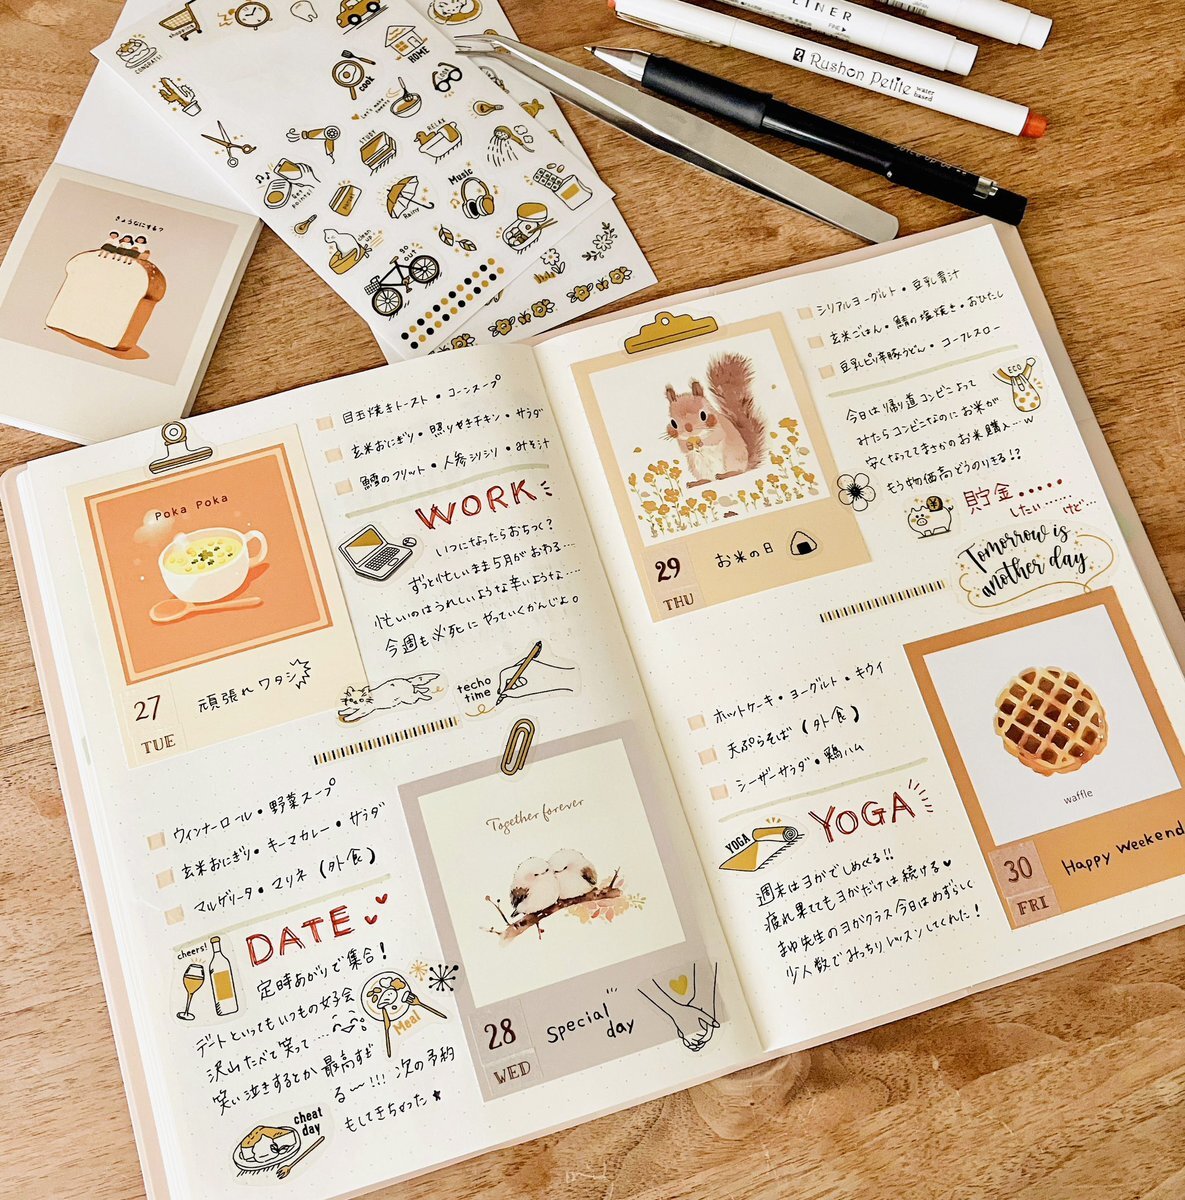 shopping
CONGRATS!
HOME
cook
Let's make sweets
STUDY
RELAX
Get points!
Rainy
Music
clean up
go out
LINER
FINE
JAPAN
Rushon Petite water based
きょうなにする?
目玉焼きトースト・コーンスープ
玄米おにぎり・照りやきチキン・サラダ
鱈のフリット・人参シリシリ・みそ汁
WORK
いつになったらおちつく?
ずっと忙しいまま5月がおわる…
忙しいのはうれしいような辛いような…
今週も必死にやっていくかんじよ。
Poka Poka
27
TUE
頑張れワタシ
techo time
ウィンナーロール・野菜スープ
玄米おにぎり・キーマカレー・サラダ
マルゲリータ・マリネ(外食)
DATE
cheers!
定時あがりで集合!
デートといってもいつもの女子会
沢山たべて笑って…
笑い泣きするとか最高すぎ
る〜!!!次の予約
もしてきちゃった
Meal
cheat day
Together forever
28
WED
Special day
シリアルヨーグルト・豆乳青汁
玄米ごはん・鯖の塩焼き・おひたし
豆乳ピリ辛豚うどん・コールスロー
今日は帰り道コンビニよって
みたらコンビニなのにお米が
安くなっててまさかのお米購入…w
もう物価高どうのりきる!?
ECO
貯金・・・・・
したい……けど…
Tomorrow is another day
29
THU
お米の日
ホットケーキ・ヨーグルト・キウイ
天ぷらそば(外食)
シーザーサラダ・鶏ハム
YOGA
YOGA
週末はヨガでしめくくる!!
疲れ果ててもヨガだけは続ける
まゆ先生のヨガクラス今日はめずらしく
少人数でみっちりレッスンしてくれた!
waffle
30
FRI
Happy Weekend